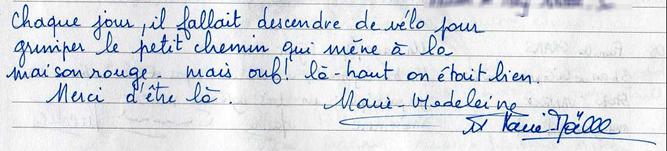 Chaque jour, il fallait descendre de vélo pour
grimper le petit chemin qui mène à la
maison rouge. mais ouf! là-haut on était bien.
Merci d'être là. Marie-Madeleine